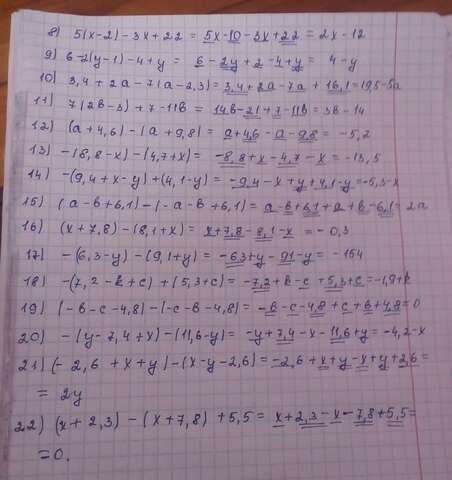 8) 5(x-2)-3x+22 = 5x-10-3x+22 = 2x-12
9) 6-2(y-1)-4+y = 6-2y+2-4+y = 4-y
10) 3,4+2a-7(a-2,3)=3,4+2a-7a+16,1=19,5-5a
11) 7(2b-3)+7-11b = 14b-21+7-11b = 3b-14
12) (a+4,6)-(a+9,8) = a+4,6-a-9,8 = -5,2
13) -(8,8-x)-(4,7+x) = -8,8+x-4,7-x = -13,5
14) -(9,4+x-y)+(4,1-y) = -9,4-x+y+4,1-y=-5,3-x
15) (a-b+6,1)-(-a-b+6,1) = a-b+6,1+a+b-6,1=2a
16) (x+7,8)-(8,1+x) = x+7,8-8,1-x = -0,3
17) -(6,3-y)-(9,1+y) = -6,3+y-9,1-y = -154
18) -(7,2-k+c)+(5,3+c)=-7,2+k-c+5,3+c=-1,9+k
19) (-b-c-4,8)-(-c-b-4,8) = -b-c-4,8+c+b+4,8=0
20) -(y-7,4+x)-(11,6-y) = -y+7,4-x-11,6+y=-4,2-x
21) (-2,6+x+y)-(x-y-2,6)=-2,6+x+y-x+y+2,6=
= 2y
22) (x+2,3)-(x+7,8)+5,5 = x+2,3-x-7,8+5,5=
=0.